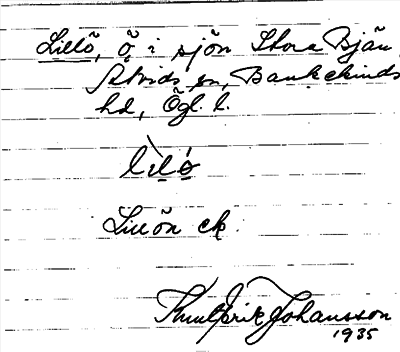 Lillö, ö i sjön Stora Bjän,
Åtvids sn, Bankekinds
hd, Ögl. l.
lìlö́
Lillön ek.
Knut Erik Johansson
1935